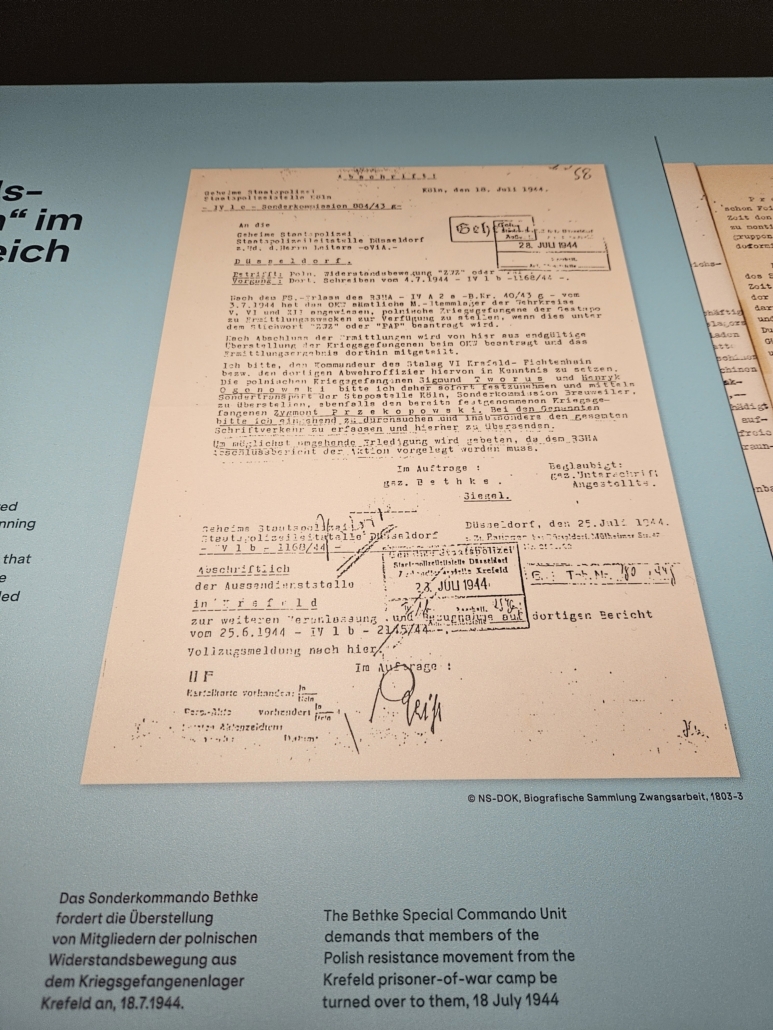 ls-
n“ im
eich
Abschrift!
58
Geheime Staatspolizei
Staatspolizeistelle Köln
- IV 1 c - Sonderkommission 004/43 g-
Köln, den 18. Juli 1944.
An die
Geheime Staatspolizei
Staatspolizeileitstelle Düsseldorf
z.Hd. d.Herrn Leiters -oViA.-
Düsseldorf.
28. JULI 1944
Betrifft: Poln. Widerstandsbewegung "ZJZ" oder
Vorgang: Dort. Schreiben vom 4.7.1944 - IV 1 b -1168/44 -.
Nach dem FS.-Erlass des RSHA - IV A 2 c -B.Nr. 40/43 g - vom
3.7.1944 hat das OKW sämtliche M.-Stammlager der Wehrkreise
V, VI und XII angewiesen, polnische Kriegsgefangene der Gestapo
zu Ermittlungszwecken zur Verfügung zu stellen, wenn dies unter
dem Stichwort "ZJZ" oder "PAP" beantragt wird.
Nach Abschluss der Ermittlungen wird von hier aus endgültige
Überstellung der Kriegsgefangenen beim OKW beantragt und das
Ermittlungsergebnis dorthin mitgeteilt.
Ich bitte, den Kommandeur des Stalag VI Krefeld- Fichtenhain
bezw. den dortigen Abwehroffizier hiervon in Kenntnis zu setzen.
Die polnischen Kriegsgefangenen Sigmund Tworus und Henryk
Ogonowski bitte ich daher sofort festzunehmen und mittels
Sondertransport der Stapostelle Köln, Sonderkommission Brauweiler,
zu überstellen, ebenfalls den bereits festgenommenen Kriegsge-
fangenen Zygmont Przekopowski. Bei den Genannten
bitte ich eingehend zu durchsuchen und insbesonders den gesamten
Schriftverkehr zu erfassen und hierher zu übersenden.
Um möglichst umgehende Erledigung wird gebeten, da dem RSHA
Abschlussbericht der Aktion vorgelegt werden muss.
Im Auftrage :
gez. Bethke.
Siegel.
Beglaubigt:
gez.Unterschrift
Angestellte.
Geheime Staatspolizei
Staatspolizeileitstelle Düsseldorf
- IV 1 b - 1168/44 -
Düsseldorf, den 25.Juli 1944.
Geheime Staatspolizei
Staatspolizeileitstelle Düsseldorf
Krefeld
JULI 1944
Abschriftlich
der Aussendienststelle
in Krefeld
zur weiteren Veranlassung und Bezugnahme auf dortigen Bericht
vom 25.6.1944 - IV 1 b - 2145/44-.
Vollzugsmeldung nach hier.
Im Auftrage :
II F
Karteikarte vorhanden: Ja
Nein
Pers.-Akte vorhanden: Ja
Nein
Aktenzeichen:
Datum:
© NS-DOK, Biografische Sammlung Zwangsarbeit, 1803-3
Das Sonderkommando Bethke
fordert die Überstellung
von Mitgliedern der polnischen
Widerstandsbewegung aus
dem Kriegsgefangenenlager
Krefeld an, 18.7.1944.
The Bethke Special Commando Unit
demands that members of the
Polish resistance movement from the
Krefeld prisoner-of-war camp be
turned over to them, 18 July 1944